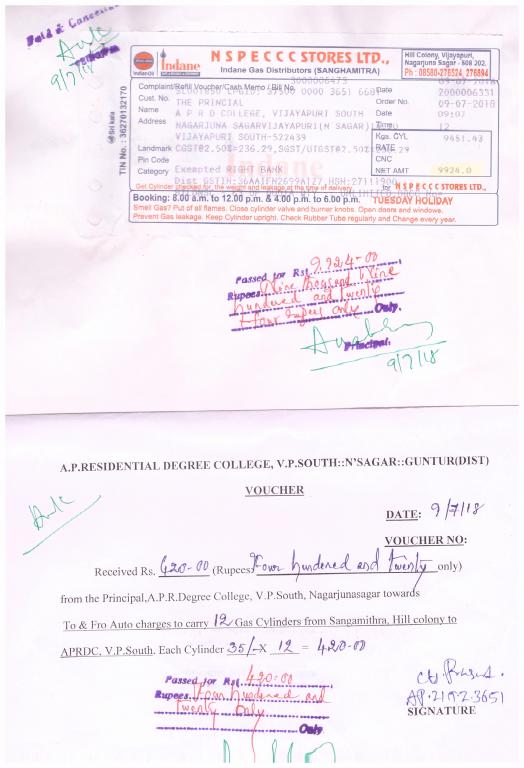 Paid & Cancelled
9/7/18
Indane
IndianOil
Indane
NSPECCC STORES LTD.,
Indane Gas Distributors (SANGHAMITRA)
Hill Colony, Vijayapuri,
Nagarjuna Sagar - 508 202.
Ph : 08680-276524, 276894
TIN No. : 36270132170
Complaint/Refill Voucher/Cash Memo / Bill No.
3000006475
Date 09-07-2018
Cust. No.
Order No. 2000006331
Name THE PRINCIAL
Date 09-07-2018
Address A P R D COLLEGE, VIJAYAPURI SOUTH
Time 09:07
NAGARJUNA SAGARVIJAYAPURI(N SAGAR)
12
VIJAYAPURI SOUTH-522439
Kgs. CYL
RATE 9451.43
Landmark CGST@2.50%=236.29,SGST/UTGST@2.50%
Pin Code
CNC
Category Exempted RIGHT BANK
NET AMT 9924.0
Get Cylinder checked for the weight and leakage at the time of delivery.
for NSPECCC STORES LTD.,
Booking: 8.00 a.m. to 12.00 p.m. & 4.00 p.m. to 6.00 p.m. TUESDAY HOLIDAY
Smell Gas? Put of all flames. Close cylinder valve and burner knobs. Open doors and windows.
Prevent Gas leakage. Keep Cylinder upright. Check Rubber Tube regularly and Change every year.
Passed for Rs. 9,924-00
Rupees Nine thousand Nine
hundred and twenty
four rupees only Only.
Principal.
9/7/18
A.P.RESIDENTIAL DEGREE COLLEGE, V.P.SOUTH::N'SAGAR::GUNTUR(DIST)
VOUCHER
DATE: 9/7/18
VOUCHER NO:
Received Rs. 420-00 (Rupees Four hundered and twenty only)
from the Principal,A.P.R.Degree College, V.P.South, Nagarjunasagar towards
To & Fro Auto charges to carry 12 Gas Cylinders from Sangamithra, Hill colony to
APRDC, V.P.South. Each Cylinder 35/-X 12 = 420-00
Passed for Rs. 420:00
Rupees Four hundered and
twenty only
Only
SIGNATURE